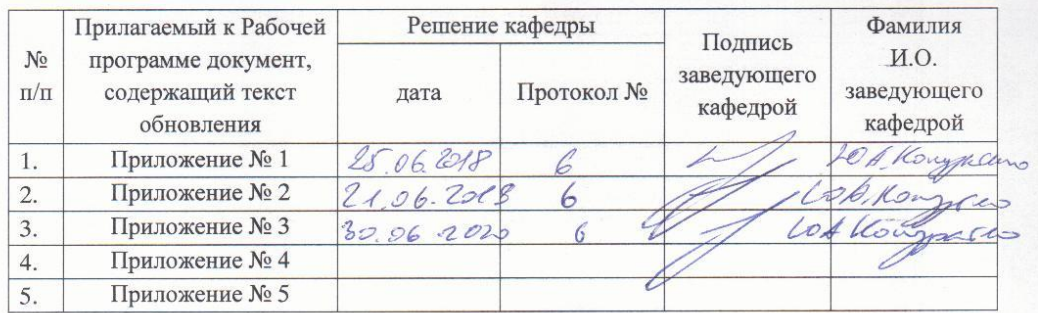 № п/п
Прилагаемый к Рабочей
программе документ,
содержащий текст
обновления
Решение кафедры
дата
Протокол №
Подпись
заведующего
кафедрой
Фамилия
И.О.
заведующего
кафедрой
1. Приложение № 1 25.06.2018 6 Ю.А.
2. Приложение № 2 21.06.2019 6
3. Приложение № 3 30.06 2020 6 ЮА
4. Приложение № 4
5. Приложение № 5